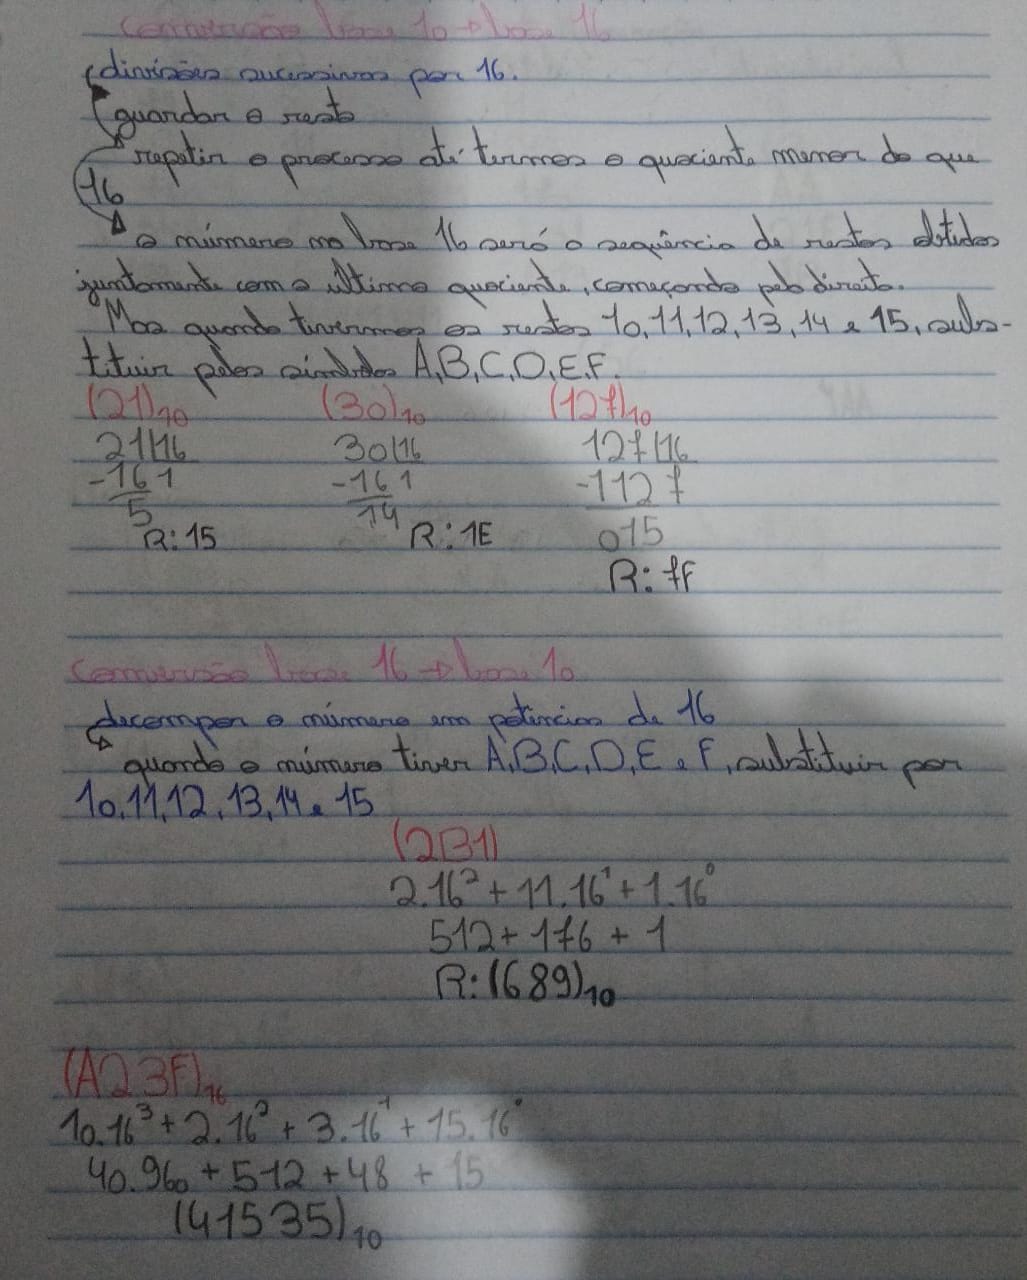 Conversão base 10 → base 16
divisões sucessivas por 16.
guardar o resto
repetir o processo até termos o quociente menor do que
16
o número na base 16 será a sequência de restos obtidos
juntamente com o último quociente, começando pela direita.
Mas quando tivermos os restos 10, 11, 12, 13, 14 e 15, subs-
tituir pelos símbolos A, B, C, D, E, F.
(21)10 (30)10 (127)10
21|16 30|16 127|16
-16 1 -16 1 -112 7
5 14 015
R: 15 R: 1E
R: 7F
Conversão base 16 → base 10
decompor o número em potências de 16
quando o número tiver A, B, C, D, E e F, substituir por
10, 11, 12, 13, 14 e 15
(2B1)
2.16² + 11.16¹ + 1.16⁰
512 + 176 + 1
R: (689)10
(A23F)16
10.16³ + 2.16² + 3.16¹ + 15.16⁰
40.960 + 512 + 48 + 15
(41535)10